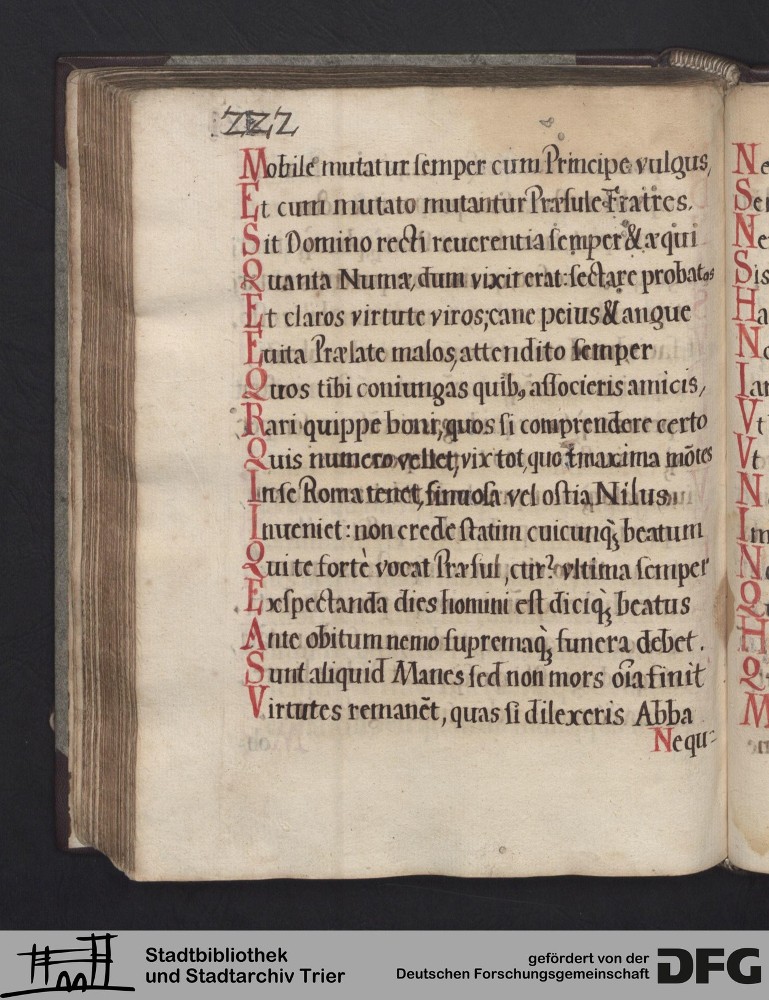 222
Mobile mutatur semper cum Principe vulgus,
Et cum mutato mutantur Præsule Fratres.
Sit Domino recti reuerentia semper & æqui
Quanta Numæ, dum vixit erat: sectare probatos
Et claros virtute viros; cane peius & angue
Euita Prælate malos, attendito semper
Quos tibi coniungas quib, associeris amicis,
Rari quippe boni, quos si comprendere certo
Quis numero vellet, vix tot, quot maxima mōtes
In se Roma tenet, sinuosa vel ostia Nilus
Inueniet: non crede statim cuicunqꝫ beatum
Qui te fortè vocat Præsul, cur? vltima semper
Exspectanda dies homini est diciqꝫ beatus
Ante obitum nemo supremaqꝫ funera debet.
Sunt aliquid Manes sed non mors oīa finit
Virtutes remanēt, quas si dilexeris Abba
Nequ=
Ne
Se
Ne
Sis
Ha
Ne
Ian
Vt
Vt
N
Im
Ne
Qu
H
Q
M
Stadtbibliothek
und Stadtarchiv Trier
gefördert von der
Deutschen Forschungsgemeinschaft
DFG